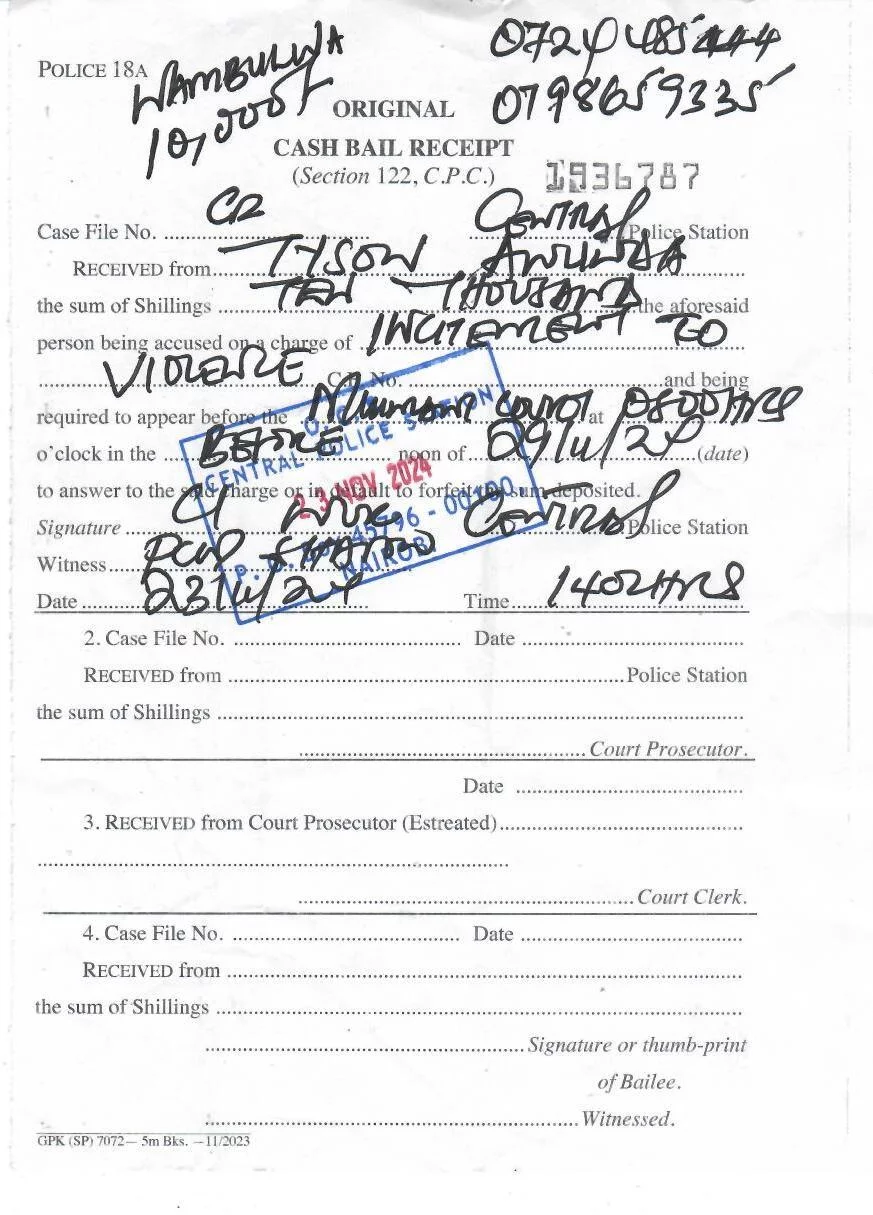 POLICE 18A
WAMBULWA
10,000/-
0724485444
0798659335
ORIGINAL
CASH BAIL RECEIPT
(Section 122, C.P.C.)
1936787
Case File No. CR CENTRAL Police Station
RECEIVED from TYSON
the sum of Shillings TEN THOUSAND the aforesaid
person being accused on a charge of INCITEMENT TO
VIOLENCE C.R. No. and being
required to appear before the COURT at 0800HRS
o'clock in the BEFORE noon of 29/11/24 (date)
to answer to the said charge or in default to forfeit the sum deposited.
Signature CENTRAL Police Station
Witness
Date 23/11/24 Time 1402HRS
CENTRAL POLICE STATION
23 NOV 2024
P. O. Box 45796 - 00100,
NAIROBI
2. Case File No. Date
RECEIVED from Police Station
the sum of Shillings
Court Prosecutor.
Date
3. RECEIVED from Court Prosecutor (Estreated)
Court Clerk.
4. Case File No. Date
RECEIVED from
the sum of Shillings
Signature or thumb-print
of Bailee.
Witnessed.
GPK (SP) 7072— 5m Bks. —11/2023